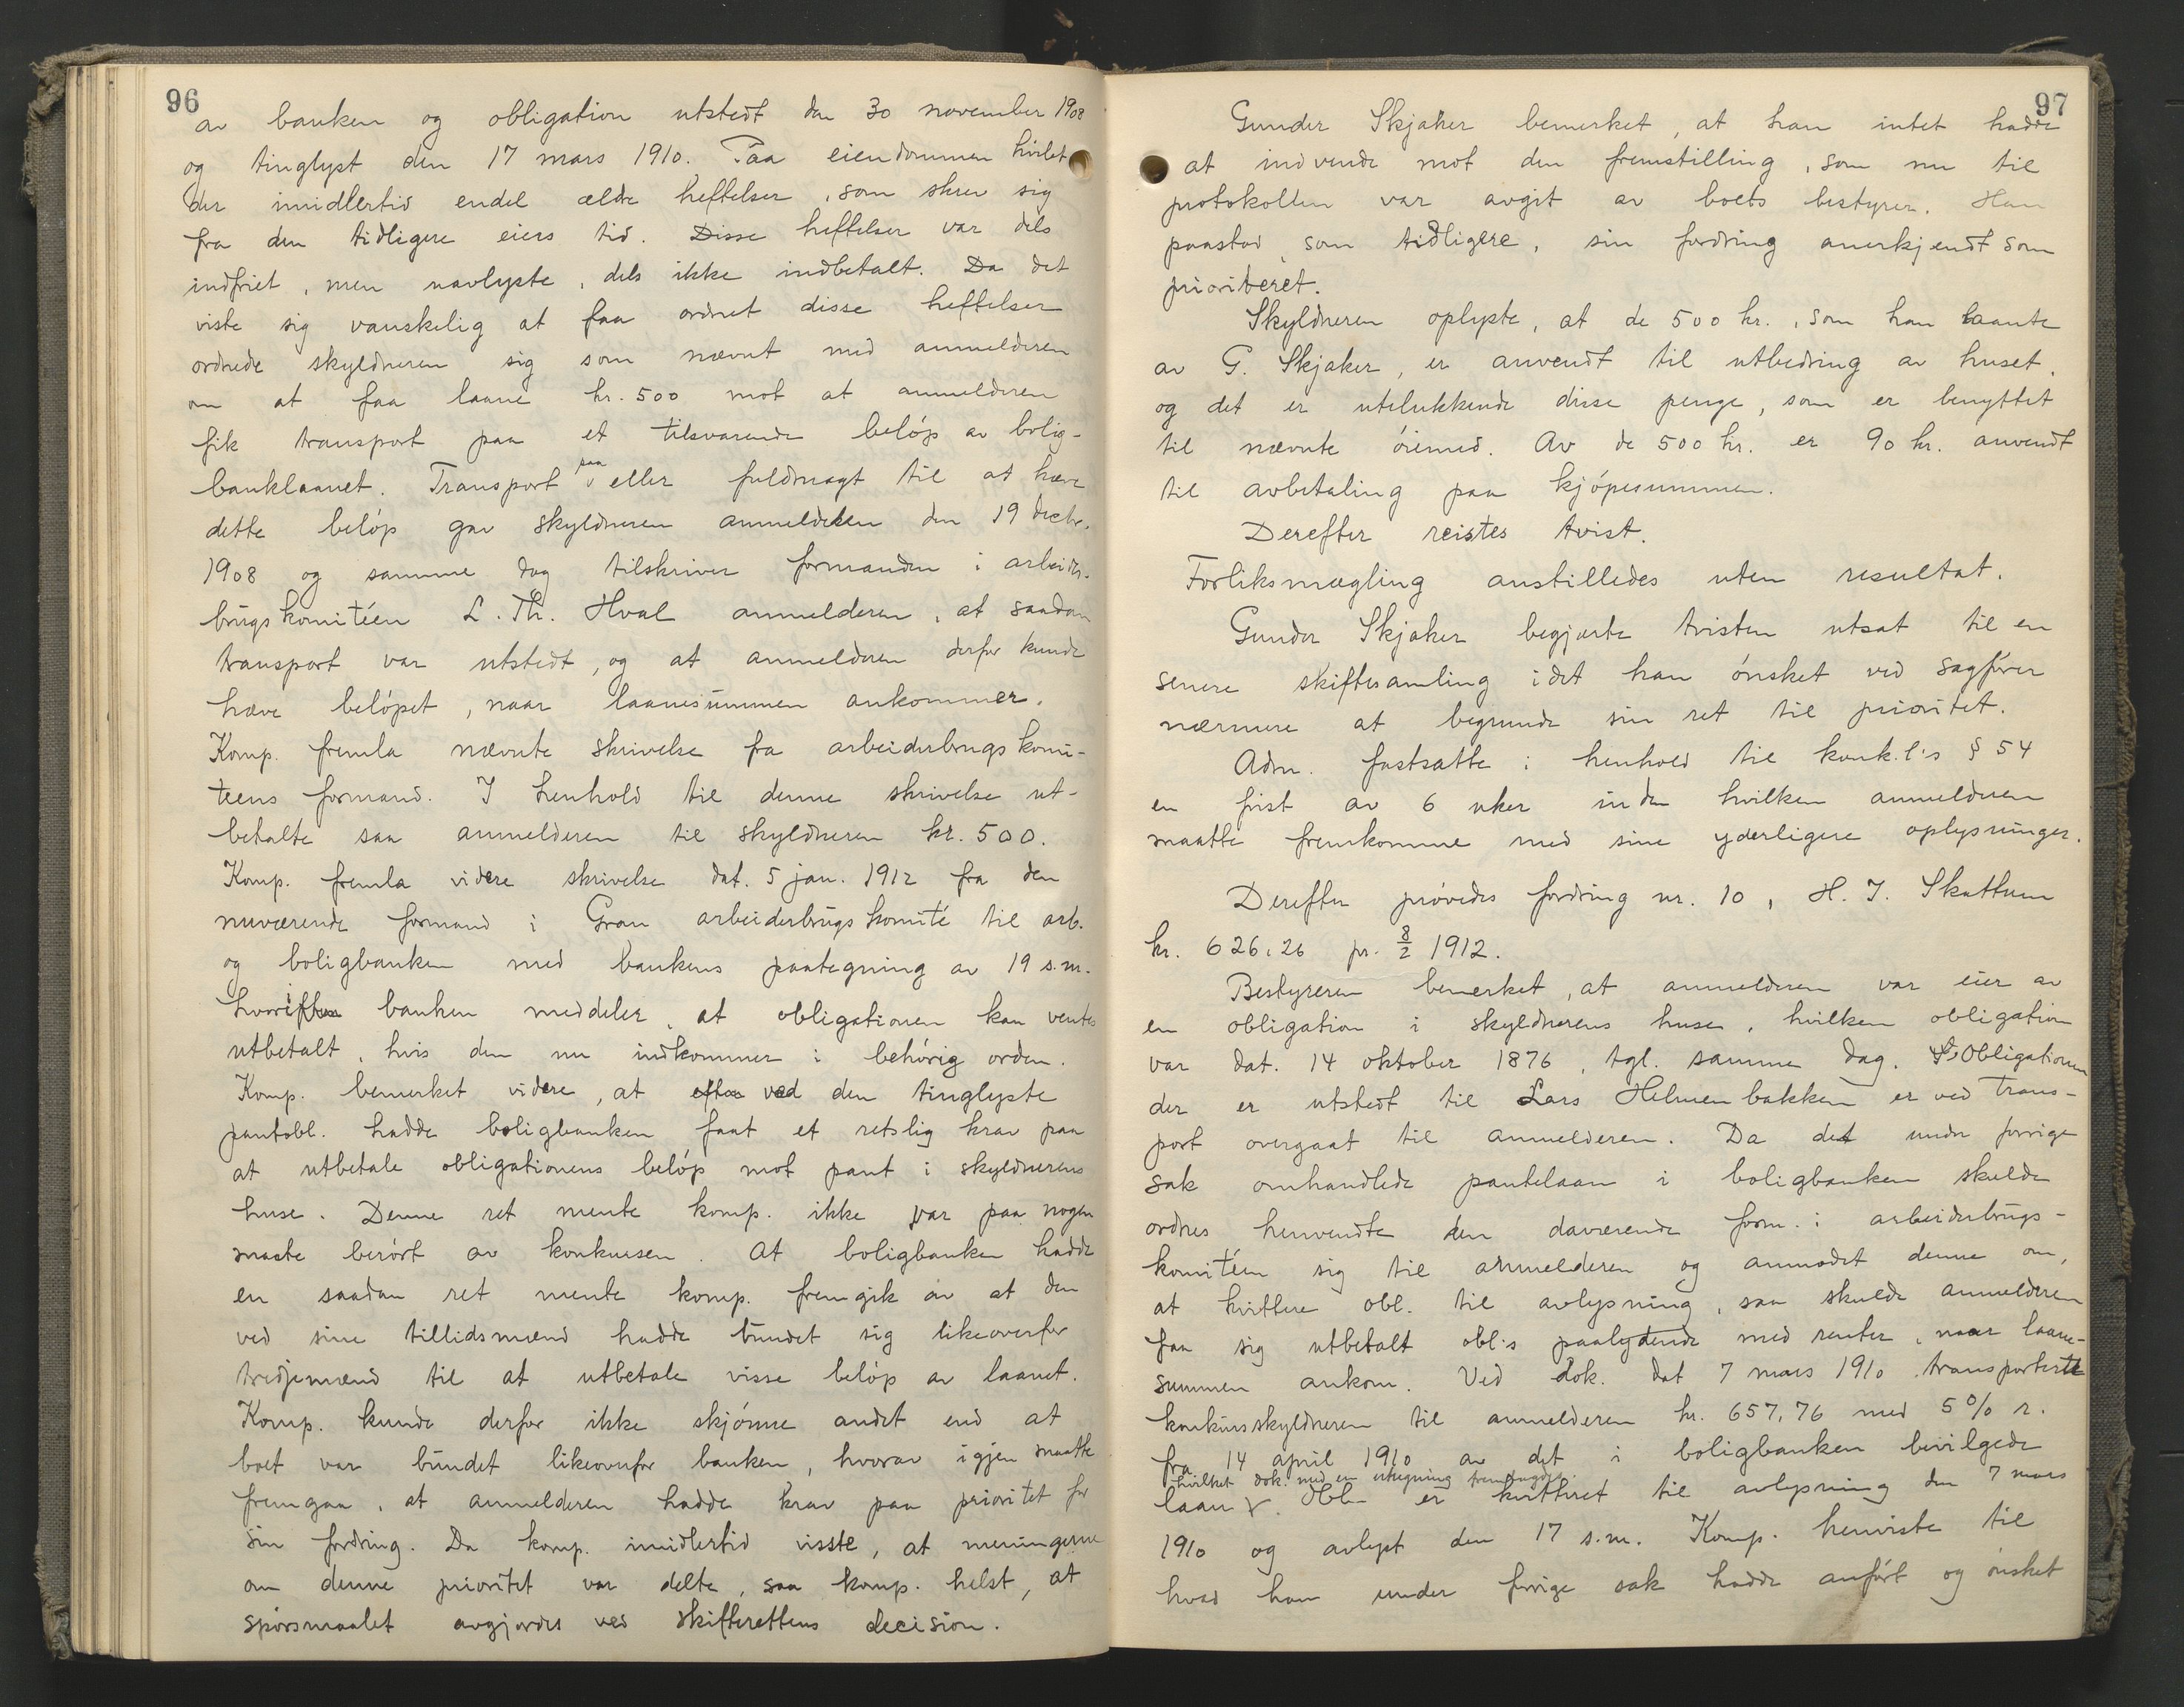 96
av banken og obligation utstedt den 30 november 1908
og tinglyst den 17 mars 1910. Paa eiendommen hvilet
der imidlertid endel ældre heftelser, som skrev sig
fra den tidligere eiers tid. Disse heftelser var dels
indfriet, men uavlyste, dels ikke indbetalt. Da det
viste sig vanskelig at faa ordnet disse heftelser
ordnede skyldneren sig som nævnt med anmelderen
om at faa laane kr. 500 mot at anmelderen
fik transport paa et tilsvarende beløp av bolig-
banklaanet. Transport paa eller fuldmagt til at hæve
dette beløp gav skyldneren anmelderen den 19 decbr.
1908 og samme dag tilskriver formanden i arbeider-
brugskomitéen L. Th. Hval anmelderen, at saadan
transport var utstedt, og at anmelderen derfor kunde
hæve beløpet, naar laanesummen ankommer.
Komp. fremla nævnte skrivelse fra arbeiderbrugskomi-
teens formand. I henhold til denne skrivelse ut-
betalte saa anmelderen til skyldneren kr. 500.
Komp. fremla videre skrivelse dat. 5 jan. 1912 fra den
nuværende formand i Gran arbeiderbrugskomité til arb.
og boligbanken med bankens paategning av 19 s.m.
hvori banken meddeler, at obligationen kan ventes
utbetalt, hvis den nu indkommer i behørig orden.
Komp. bemerket videre, at efter ved den tinglyste
pantobl. hadde boligbanken faat et retslig krav paa
at utbetale obligationens beløp mot pant i skyldnerens
huse. Denne ret mente komp. ikke var paa nogen
maate berørt av konkursen. At boligbanken hadde
en saadan ret mente komp. fremgik av at den
ved sine tillidsmænd hadde bundet sig likeoverfor
tredjemænd til at utbetale visse beløp av laanet.
Komp. kunde derfor ikke skjønne andet end at
boet var bundet likeoverfor banken, hvorav igjen maatte
fremgaa, at anmelderen hadde krav paa prioritet for
sin fordring. Da komp. imidlertid visste, at meningerne
om denne prioritet var delte, saa komp. helst, at
spørsmaalet avgjordes ved skifterettens decision.
97
Gunder Skjaker bemerket, at han intet hadde
at indvende mot den fremstilling, som nu til
protokollen var avgit av boets bestyrer. Han
paastod, som tidligere, sin fordring anerkjendt som
prioriteret.
Skyldneren oplyste, at de 500 kr., som han laante
av G. Skjaker, er anvendt til utbedring av huset,
og det er utelukkende disse penge, som er benyttet
til nævnte øiemed. Av de 500 kr. er 90 kr. anvendt
til avbetaling paa kjøpesummen.
Derefter reistes tvist.
Forliksmægling anstilledes uten resultat.
Gunder Skjaker begjærte tvisten utsat til en
senere skiftesamling idet han ønsket ved sagfører
nærmere at begrunde sin ret til prioritet.
Adm. fastsatte i henhold til konk.l's § 54
en frist av 6 uker inden hvilken anmelderen
maatte fremkomme med sine yderligere oplysninger.
Derefter prøvedes fordring nr. 10, H. J. Skattum
kr. 626,26 pr. 8/2 1912.
Bestyreren bemerket, at anmelderen var eier av
en obligation i skyldnerens huse, hvilken obligation
var dat. 14 oktober 1876, tgl. samme dag. Obligationen
der er utstedt til Lars Helmenbakken er ved trans-
port overgaat til anmelderen. Da det under forrige
sak omhandlede pantelaan i boligbanken skulde
ordnes henvendte den daværende form. i arbeiderbrugs-
komitéen sig til anmelderen og anmodet denne om,
at kvittere obl. til avlysning, saa skulde anmelderen
faa sig utbetalt obl's paalydende med renter, naar laane-
summen ankom. Ved dok. dat 7 mars 1910 transporterte
konkursskyldneren til anmelderen kr. 657,76 med 5 % r.
fra 14 april 1910 av det i boligbanken bevilgede
hvilket dok. med en utregning fremlagdes.
laan. Obl. er kvitteret til avlysning den 7 mars
1910 og avlyst den 17 s.m. Komp. henviste til
hvad han under forrige sak hadde anført og ønsket